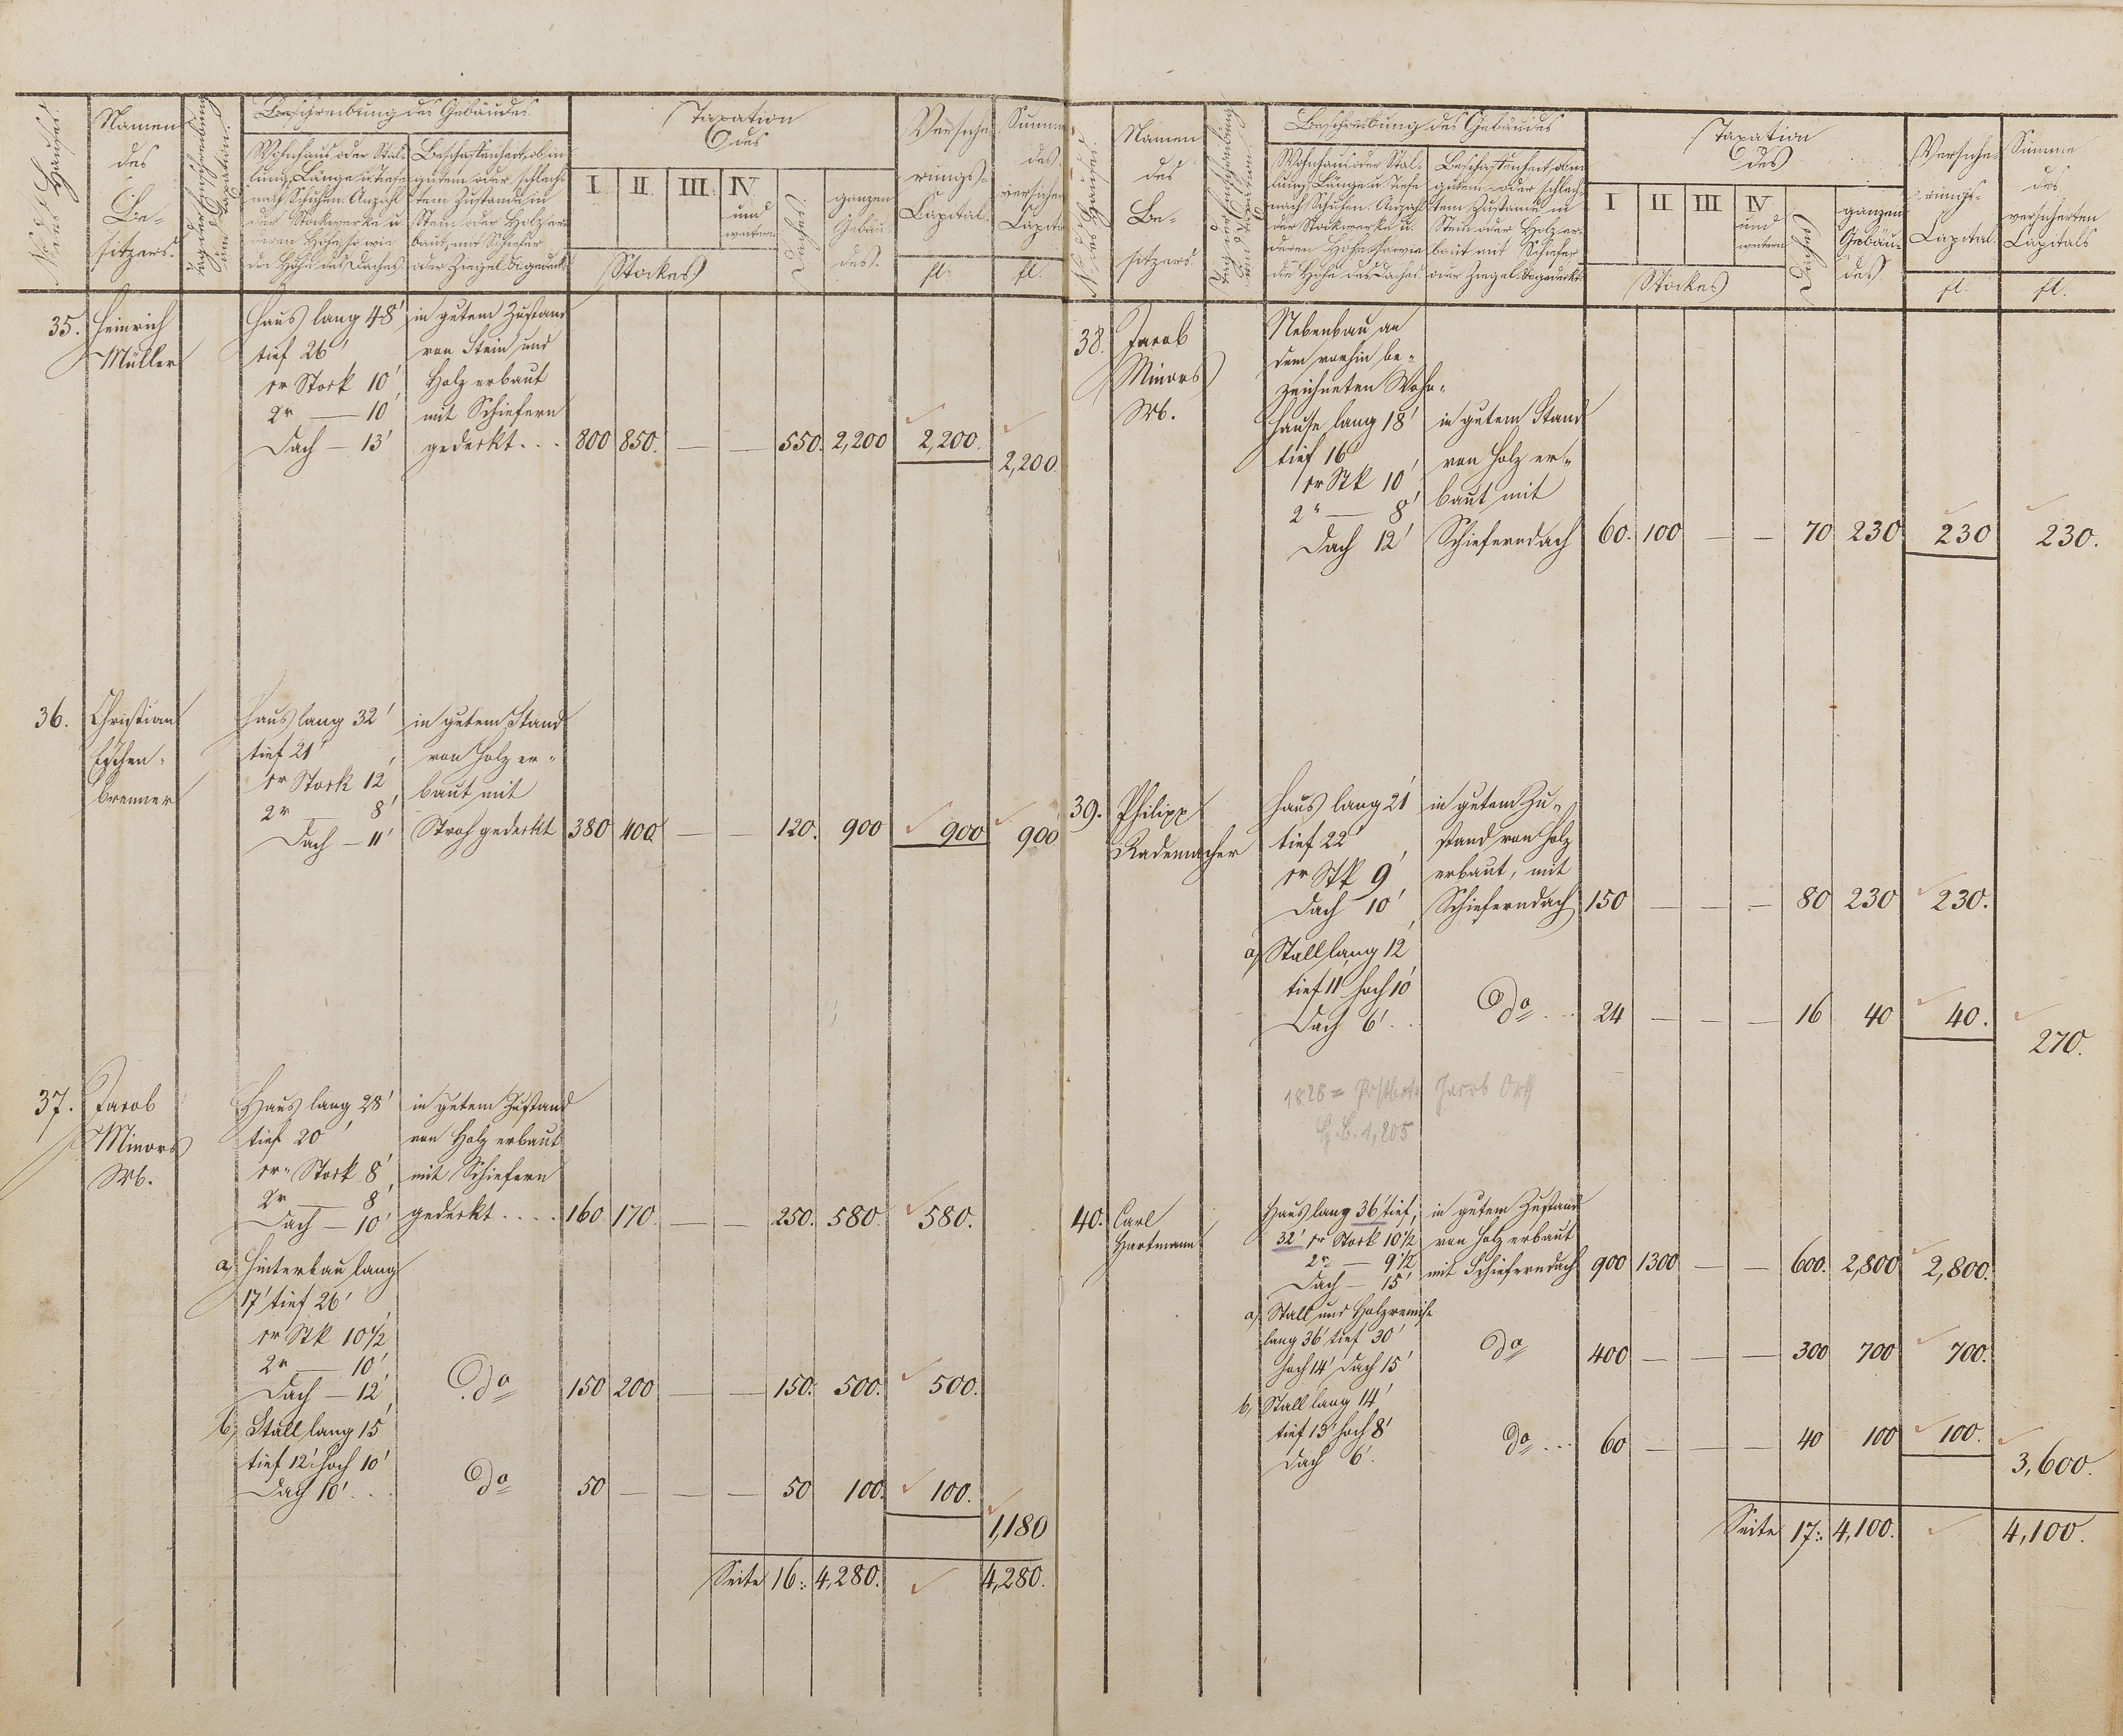 No. des Hauses.
Namen
des
Be-
sitzers.
Tag der Einschreibung
und Taxation.
Beschreibung des Gebäudes.
Wohnhaus oder Stal-
lung, Länge u Tiefe
nach Schuhen. Anzahl
der Stockwerke u
deren Höhe, so wie
die Höhe des Daches.
Beschaffenheit, ob in
gutem oder schlech-
tem Zustande in
Stein oder Holz er-
baut, mit Schiefer
oder Ziegel &c gedeckt.
Taxation
des
I. II. III. IV.
und
weitern
Stockes
Daches.
ganzen
Gebäu-
des.
Versiche-
rungs-
Capital.
fl.
Summe
des
versicher
Capita
fl.
35. Heinrich
Müller
Haus lang 48'
tief 26'
1r Stock 10'
2r — 10'
Dach — 13'
in gutem Zustand
von Stein und
Holz erbaut
mit Schiefern
gedeckt . . . 800 850. — — 550. 2,200 2,200.
2,200.
36. Christian
Eschen-
brenner
Haus lang 32'
tief 21'
1r Stock 12'
2r — 8'
Dach — 11'
in gutem Stand
von Holz er-
baut mit
Stroh gedeckt 380 400. — — 120. 900 900 900
37. Jacob
Minors
Wb.
Haus lang 28'
tief 20'
1r Stock 8'
2r — 8'
Dach — 10'
in gutem Zustand
von Holz erbaut
mit Schiefern
gedeckt . . . . 160. 170. — — 250. 580. 580.
a, Hinterbau lang
17' tief 26'
1r Stk 10½'
2r — 10'
Dach — 12'
do 150 200 — — 150. 500. 500.
b, Stall lang 15'
tief 12' hoch 10'
Dach 10' . .
do 50 — — — 50 100. 100.
1,180
Seite 16.: 4,280. 4,280.
No. des Hauses.
Namen
des
Be-
sitzers.
Tag der Einschreibung
und Taxation.
Beschreibung des Gebäudes
Wohnhaus oder Stal-
lung, Länge u Tiefe
nach Schuhen. Anzahl
der Stockwerke u.
deren Höhe, so wie
die Höhe des Daches
Beschaffenheit, ob in
gutem oder schlech-
tem Zustande in
Stein oder Holz er-
baut mit Schiefer
oder Ziegel &c gedeckt.
Taxation
des
I II III IV
und
weitern
Stockes
Daches
ganzen
Gebäu-
des
Versiche-
rungs-
Capital.
fl.
Summe
des
versicherten
Capitals
fl.
38. Jacob
Minors
Wb.
Nebenbau an
dem vorhin be-
zeichneten Wohn-
hause lang 18'
tief 16'
1r Stk 10'
2r — 8'
Dach 12'
in gutem Stand
von Holz er-
baut mit
Schieferndach 60. 100 — — 70 230 230 230.
39. Philipp
Rademacher
Haus lang 21'
tief 22'
1r Stk 9'
Dach 10'
in gutem Zu-
stand von Holz
erbaut, mit
Schieferndach 150 — — — 80 230 230.
a, Stall lang 12'
tief 11' hoch 10'
Dach 6' . .
do . . . 24 — — — 16 40 40.
270.
1828 = Jacob
1,205
40. Carl
Hartmann
Haus lang 36' tief,
32' 1r Stock 10½'
2r — 9½'
Dach — 15'
in gutem Zustand
von Holz erbaut
mit Schieferndach 900 1300 — — 600. 2,800 2,800.
a, Stall und Holzremise
lang 36' tief 30'
hoch 14' Dach 15'
do 400 — — — 300 700 700.
b, Stall lang 14'
tief 15' hoch 8'
Dach 6'.
do . . . 60 — — — 40 100 100.
3,600.
Seite 17.: 4,100. 4,100.